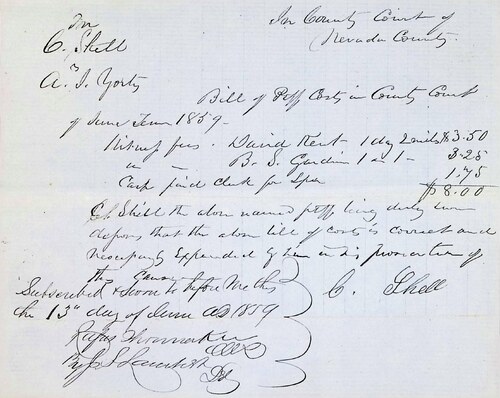 In County Court of
Nevada County.
C. Shell
vs
A. J. Yorty
Bill of Plff Costs in County Court
of June Term 1859-
Witness fees. David Kent 1 day 2 miles $3.50
" - B. S. 1 " 1 - 3.25
Cash paid clerk for 1.75
$8.00
C. Shell the above named plff being duly sworn
deposes that the above bill of costs is correct and
necessarily Expended by him in his prosecution of
this Cause
C. Shell
Subscribed & Sworn to before me this
the 13th day of June AD 1859
Rufus Shoemaker
Clk
By J. S. Lambert
Dy